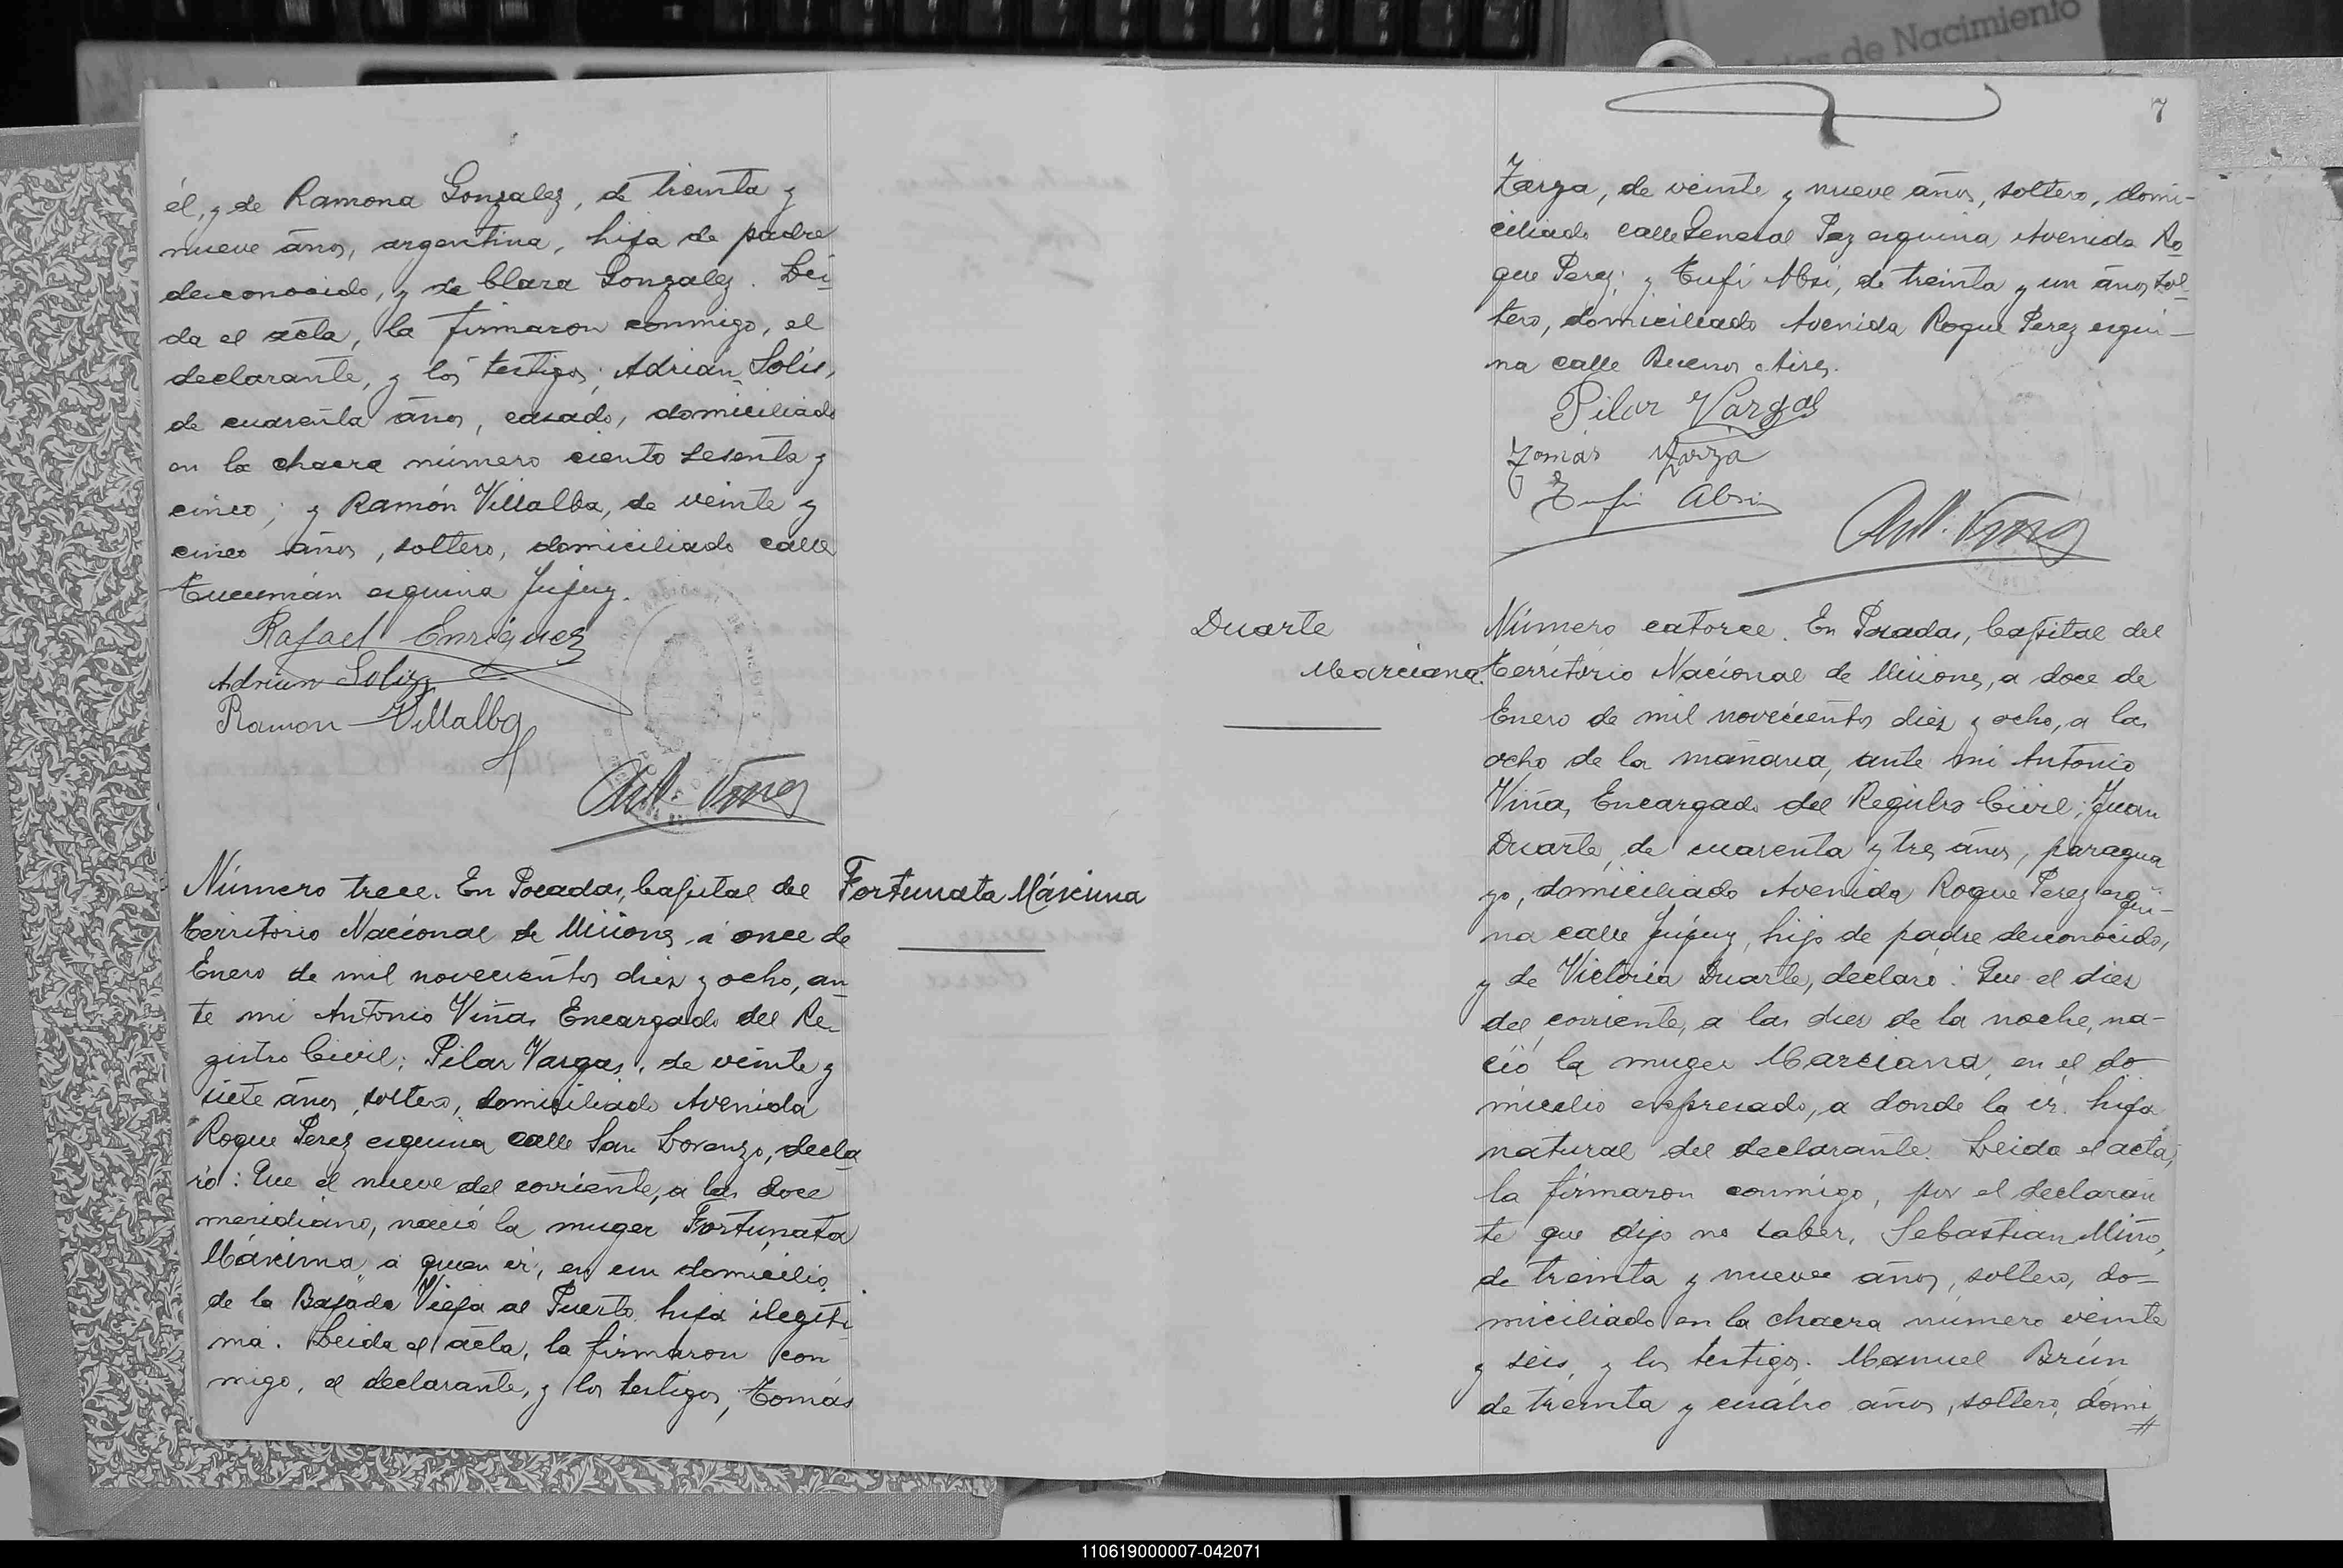 de Nacimiento
él, y de Ramona Gonzalez, de treinta y
nueve años, argentina, hija de padre
desconocido, y de Clara Gonzalez. Lei
da el acta, la firmaron conmigo, el
declarante, y los testigos; Adrián Solis,
de cuarenta años, casado, domiciliado
en la chacra número ciento sesenta y
cinco; y Ramón Villalba, de veinte y
cinco años, soltero, domiciliado calle
Tucumán esquina Jujuy.
Rafael Enriquez
Adrian Soliz
Ramon Villalba
Ant. Viñas
Número trece. En Posadas, Capital del
Territorio Nacional de Misiones, á once de
Enero de mil novecientos diez y ocho, an
te mi Antonio Viñas Encargado del Re-
gistro Civil; Pilar Vargas, de veinte y
siete años, soltero, domiciliado Avenida
Roque Perez esquina calle San Lorenzo, decla
ró: Que el nueve del corriente, a las doce
meridiano, nació la muger Fortunata
Máxima, á quien ví, en su domicilio
de la Bajada Vieja al Puerto, hija ilegiti-
ma. Leida el acta, la firmaron con
migo, el declarante, y los testigos, Tomás
Fortunata Máxima
7
Zarza, de veinte y nueve años, soltero, domi-
ciliado calle General Paz esquina Avenida Ro
que Perez; y Tufi Absi, de treinta y un años, sol-
tero, domiciliado Avenida Roque Perez esqui-
na calle Buenos Aires.
Pilar Vargas
Tomás Zarza
Tufi Absi
Ant. Viñas
Duarte
Marciana.
Número catorce. En Posadas, Capital del
Territorio Nacional de Misiones, a doce de
Enero de mil novecientos diez y ocho, a las
ocho de la mañana, ante mi Antonio
Viñas, Encargado del Registro Civil; Juan
Duarte, de cuarenta y tres años, paragua
yo, domiciliado Avenida Roque Perez esqui-
na calle Jujuy, hijo de padre desconocido,
y de Victoria Duarte, declaró: Que el diez
del corriente, a las diez de la noche, na-
ció la muger Marciana, en el do
micilio expresado, a donde la ví, hija
natural del declarante. Leida el acta,
la firmaron conmigo, por el declaran
te que dijo no saber, Sebastian Miño,
de treinta y nueve años, soltero, do-
miciliado en la chacra número veinte
y seis, y los testigos: Manuel Brún
de treinta y cuatro años, soltero, domi
110619000007-042071